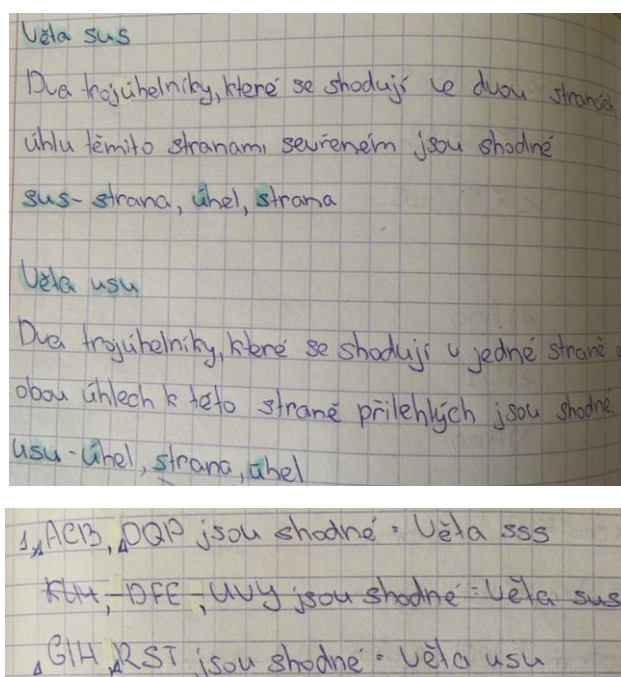 Věta sus
Dva trojúhelníky, které se shodují ve dvou stranách
úhlu těmito stranami sevřeném jsou shodné
sus- strana, úhel, strana
Věta usu
Dva trojúhelníky, které se shodují v jedné straně
obou úhlech k této straně přilehlých jsou shodné
usu - úhel, strana, úhel
1, △ACB, △OQP jsou shodné = Věta sss
KLH, DFE, UVY jsou shodné = Věta sus
△GIH △RST jsou shodné = věta usu